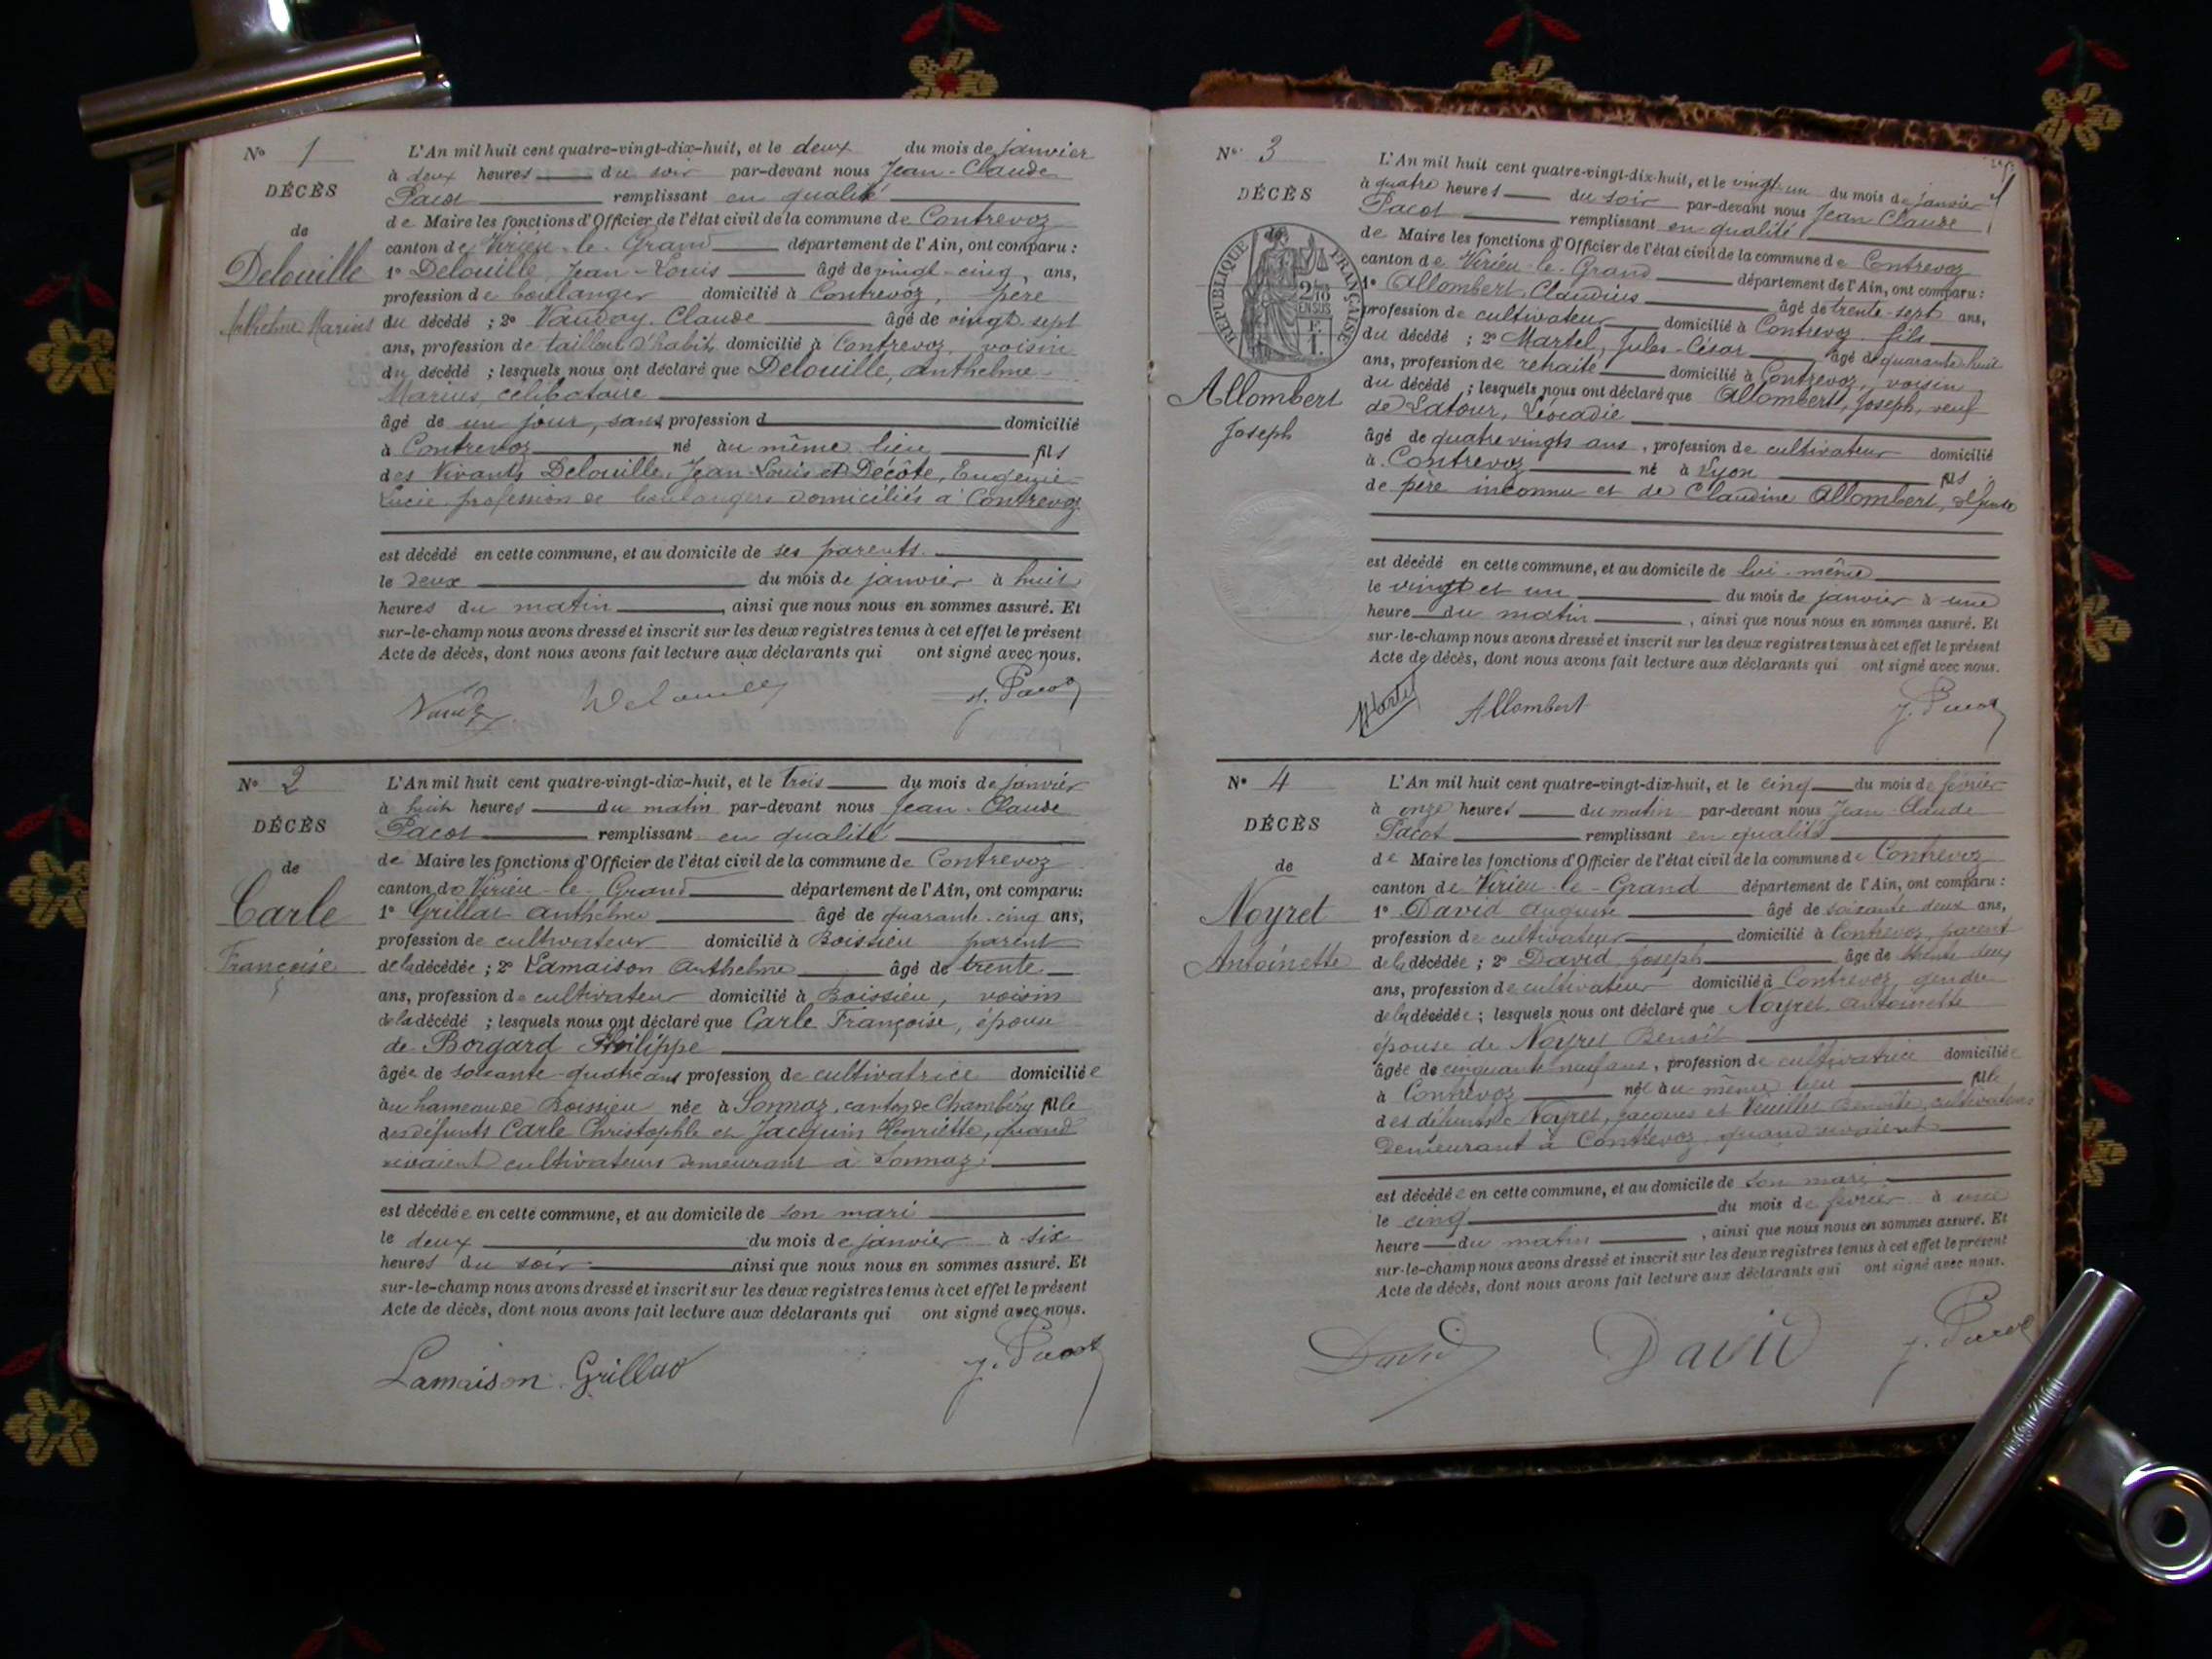 N° 1
DÉCÈS
de
Delouille
Anthelme Marius
L'An mil huit cent quatre-vingt-dix-huit, et le deux du mois de janvier
à deux heures du soir par-devant nous Jean-Claude
Pacot remplissant en qualité
de Maire les fonctions d'Officier de l'état civil de la commune de Contrevoz
canton de Virieu-le-Grand département de l'Ain, ont comparu :
1° Delouille Jean-Louis âgé de vingt-cinq ans,
profession de boulanger domicilié à Contrevoz, père
du décédé ; 2° Vauday Claude âgé de vingt sept
ans, profession de tailleur d'habits domicilié à Contrevoz, voisin
du décédé ; lesquels nous ont déclaré que Delouille, Anthelme
Marius, célibataire
âgé de un jour, sans profession d domicilié
à Contrevoz né au même lieu fils
des Vivants Delouille, Jean-Louis et Decôte, Eugénie
Lucie profession de boulangers domiciliés à Contrevoz
est décédé en cette commune, et au domicile de ses parents
le deux du mois de janvier à huit
heures du matin, ainsi que nous nous en sommes assuré. Et
sur-le-champ nous avons dressé et inscrit sur les deux registres tenus à cet effet le présent
Acte de décès, dont nous avons fait lecture aux déclarants qui ont signé avec nous.
Delouille J. Pacot
N° 2
DÉCÈS
de
Carle
Françoise
L'An mil huit cent quatre-vingt-dix-huit, et le trois du mois de janvier
à huit heures du matin par-devant nous Jean-Claude
Pacot remplissant en qualité
de Maire les fonctions d'Officier de l'état civil de la commune de Contrevoz
canton de Virieu-le-Grand département de l'Ain, ont comparu :
1° Grillat Anthelme âgé de quarante-cinq ans,
profession de cultivateur domicilié à Boissieu parent
de la décédée ; 2° Lamaison Anthelme âgé de trente
ans, profession de cultivateur domicilié à Boissieu, voisin
de la décédé ; lesquels nous ont déclaré que Carle Françoise, épouse
de Borgard Philippe
âgée de soixante-quatre ans profession de cultivatrice domiciliée
au hameau de Boissieu née à Sonnaz, canton de Chambéry fille
des défunts Carle Christophle et Jacquin Henriette, quand
vivaient cultivateurs demeurant à Sonnaz
est décédée en cette commune, et au domicile de son mari
le deux du mois de janvier à six
heures du soir ainsi que nous nous en sommes assuré. Et
sur-le-champ nous avons dressé et inscrit sur les deux registres tenus à cet effet le présent
Acte de décès, dont nous avons fait lecture aux déclarants qui ont signé avec nous.
Lamaison Grillat J. Pacot
N° 3
DÉCÈS
de
RÉPUBLIQUE FRANÇAISE
Allombert
Joseph
L'An mil huit cent quatre-vingt-dix-huit, et le vingt-un du mois de janvier
à quatre heures du soir par-devant nous Jean Claude
Pacot remplissant en qualité
de Maire les fonctions d'Officier de l'état civil de la commune de Contrevoz
canton de Virieu-le-Grand département de l'Ain, ont comparu :
1° Allombert, Claudius âgé de trente-sept ans,
profession de cultivateur domicilié à Contrevoz fils
du décédé ; 2° Martel, Jules-César âgé de quarante-huit
ans, profession de retraité domicilié à Contrevoz, voisin
du décédé ; lesquels nous ont déclaré que Allombert, Joseph, veuf
de Latour, Léocadie
âgé de quatre vingts ans, profession de cultivateur domicilié
à Contrevoz né à Lyon fils
de père inconnu et de Claudine Allombert, défunte
est décédé en cette commune, et au domicile de lui-même
le vingt et un du mois de janvier à une
heure du matin, ainsi que nous nous en sommes assuré. Et
sur-le-champ nous avons dressé et inscrit sur les deux registres tenus à cet effet le présent
Acte de décès, dont nous avons fait lecture aux déclarants qui ont signé avec nous.
Martel Allombert J. Pacot
N° 4
DÉCÈS
de
Noyret
Antoinette
L'An mil huit cent quatre-vingt-dix-huit, et le cinq du mois de février
à onze heures du matin par-devant nous Jean-Claude
Pacot remplissant en qualité
de Maire les fonctions d'Officier de l'état civil de la commune de Contrevoz
canton de Virieu-le-Grand département de l'Ain, ont comparu :
1° David Auguste âgé de soixante deux ans,
profession de cultivateur domicilié à Contrevoz, parent
de la décédée ; 2° David Joseph âgé de trente deux
ans, profession de cultivateur domicilié à Contrevoz, gendre
de la décédée ; lesquels nous ont déclaré que Noyret Antoinette
épouse de Noyret Benoît
âgée de cinquante neuf ans, profession de cultivatrice domiciliée
à Contrevoz née au même lieu fille
des défunts Noyret, Jacques et Benoîte, cultivateurs
demeurant à Contrevoz quand vivaient
est décédée en cette commune, et au domicile de son mari
le cinq du mois de février à une
heure du matin, ainsi que nous nous en sommes assuré. Et
sur-le-champ nous avons dressé et inscrit sur les deux registres tenus à cet effet le présent
Acte de décès, dont nous avons fait lecture aux déclarants qui ont signé avec nous.
David David J. Pacot